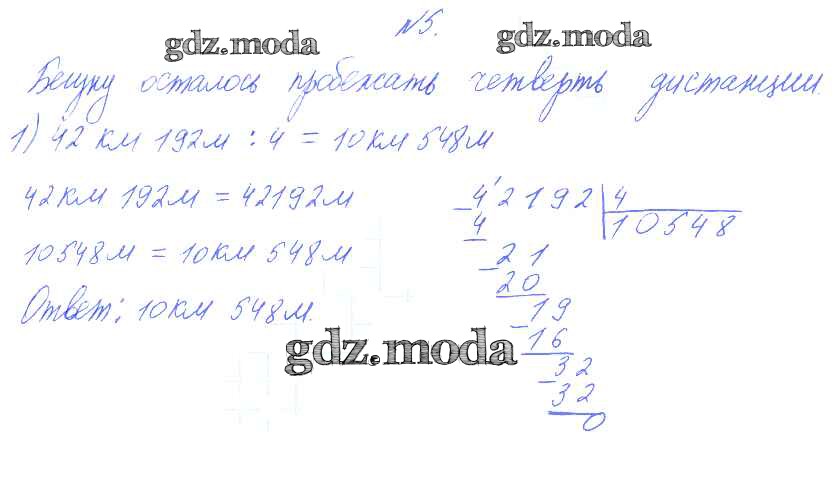 №5.
gdz.moda gdz.moda
Бегуну осталось пробежать четверть дистанции.
1) 42 км 192м : 4 = 10км 548м
42км 192м = 42192м
10548м = 10км 548м
Ответ: 10км 548м.
42192 4
4 10548
21
20
19
16
32
32
0
gdz.moda